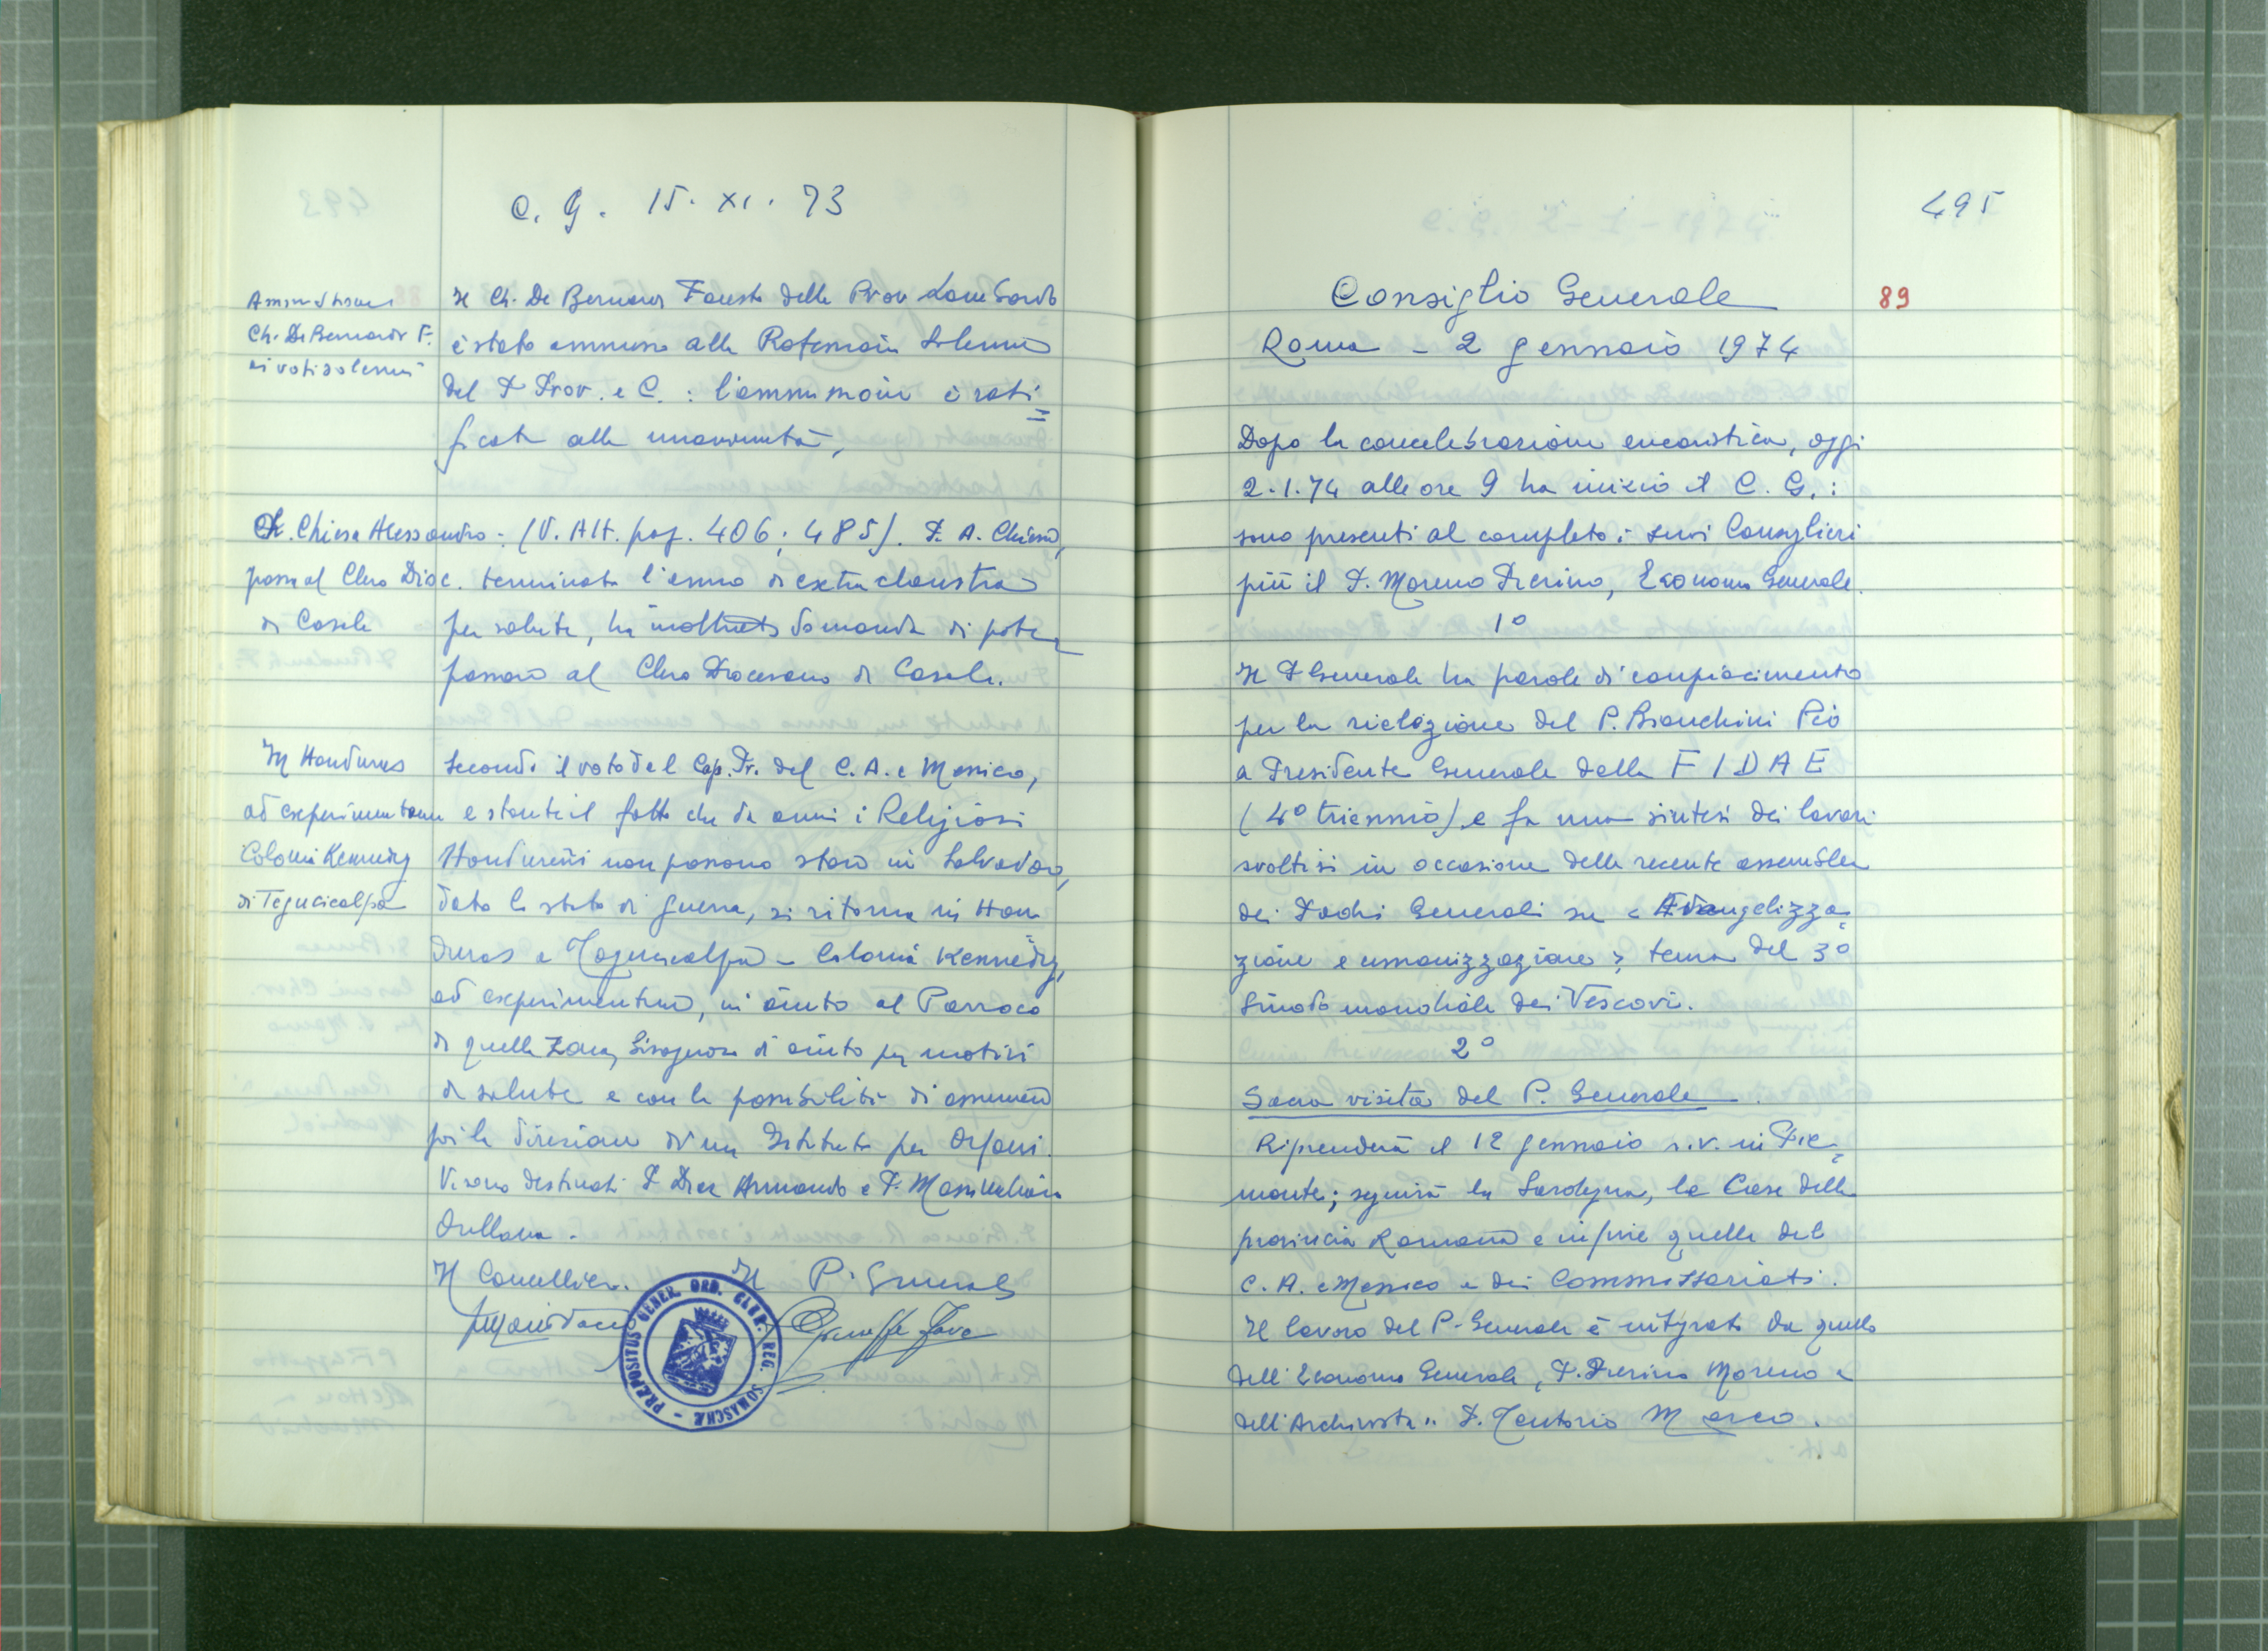 C. G. 15. XI. 73
Ammissione
Ch. De Bernardi F.
ai voti solenni
Il Ch. De Bernardi Fausto della Prov Lombardo
è stato ammesso alla Professione Solenne
dal P Prov. e C. : l'ammissione è rati=
ficata alla unanimità,
Ch. Chiesa Alessandro : (V. Att. pag. 406 ; 485). P. A. Chiesa,
passa al Clero Dioc. terminato l'anno di extra claustra
di Casale per salute, ha inoltrato domanda di poter
passare al Clero Diocesano di Casale.
In Honduras
ad experimentum
Colonia Kennedy
di Tegucicalpa
Secondo il voto del Cap. Pr. del C. A. e Messico,
e stante il fatto che da anni i Religiosi
Hondureñi non possono stare in Salvador,
dato lo stato di guerra, si ritorna in Hon
duras a Tegucicalpa - Colonia Kennedy,
ad experimentum, in aiuto al Parroco
di quella zona, bisognoso di aiuto per motivi
di salute e con la possibilità di assumere
poi la direzione di un Istituto per Orfani.
Vi sono destinati P Diaz Armando e P. Massimiliano
Orellana.
Il Cancelliere. Il P. Generale
Giuseppe Fava
PRÆPOSITUS GENER. ORD. CLER. REG. SOMASCHÆ
495
Consiglio Generale 89
Roma - 2 gennaio 1974
Dopo la concelebrazione eucaristica, oggi
2.1.74 alle ore 9 ha inizio il C. G. :
sono presenti al completo i suoi Consiglieri
più il P. Moreno Pierino, Economo Generale.
1°
Il P Generale ha parole di compiacimento
per la rielezione del P. Bianchini Pio
a Presidente Generale della F I D A E
(4° triennio) e fa una sintesi dei lavori
svoltisi in occasione della recente assemblea
dei Padri Generali su < Evangelizza=
zione e umanizzazione > tema del 3°
Sinodo mondiale dei Vescovi.
2°
Sacra visita del P. Generale.
Riprenderà il 12 gennaio s.v. in Pie=
monte; seguirà la Sardegna, le Case della
provincia Romana e infine quelle del
C. A. e Messico e dei Commissariati.
Il lavoro del P. Generale è integrato da quello
dell'Economo Generale, P. Pierino Moreno e
dell'Archivista " P. Tentorio Marco.